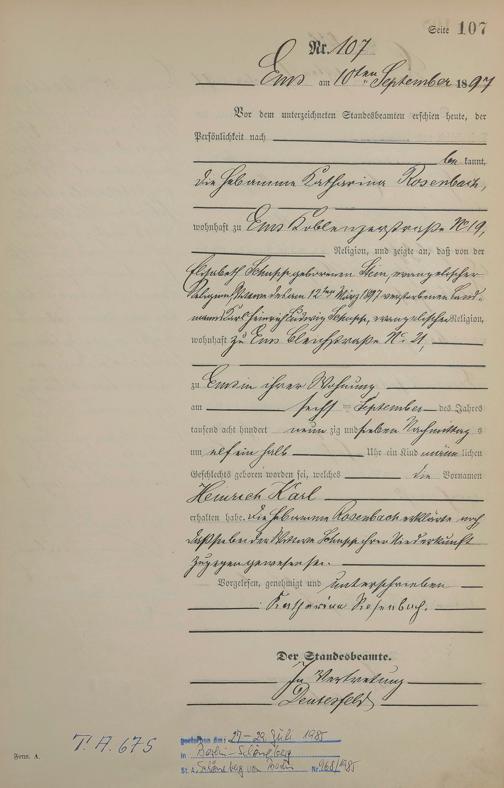 Seite 107
Nr. 107
Ems am 10ten September 1897
Vor dem unterzeichneten Standesbeamten erschien heute, der
Persönlichkeit nach
bekannt,
die Hebamme Katharina Rosenbach,
wohnhaft zu Ems Koblenzerstraße No 19,
Religion, und zeigte an, daß von der
Elisabeth geborenen evangelischer
Religion, Wittwe des am 12ten März 1897 verstorbenen Land-
manns Karl Heinrich Ludwig evangelischer Religion,
wohnhaft zu Ems Bleichstraße No 21,
zu Ems in ihrer Wohnung
am sechs September des Jahres
tausend acht hundert neunzig und sieben Nachmittags
um elf ein halb Uhr ein Kind männlichen
Geschlechts geboren worden sei, welches die Vornamen
Heinrich Karl
erhalten habe. Die Hebamme Rosenbach erklärte noch,
daß sie bei der Wittwe ihrer Niederkunft
zugegen gewesen sei.
Vorgelesen, genehmigt und unterschrieben
Katharina Rosenbach.
Der Standesbeamte.
In Vertretung
T. A. 675
gestorben am: 27-29 Juli 1985
in Berlin-Schöneberg
St. A. Schöneberg von Berlin Nr.
Form. A.